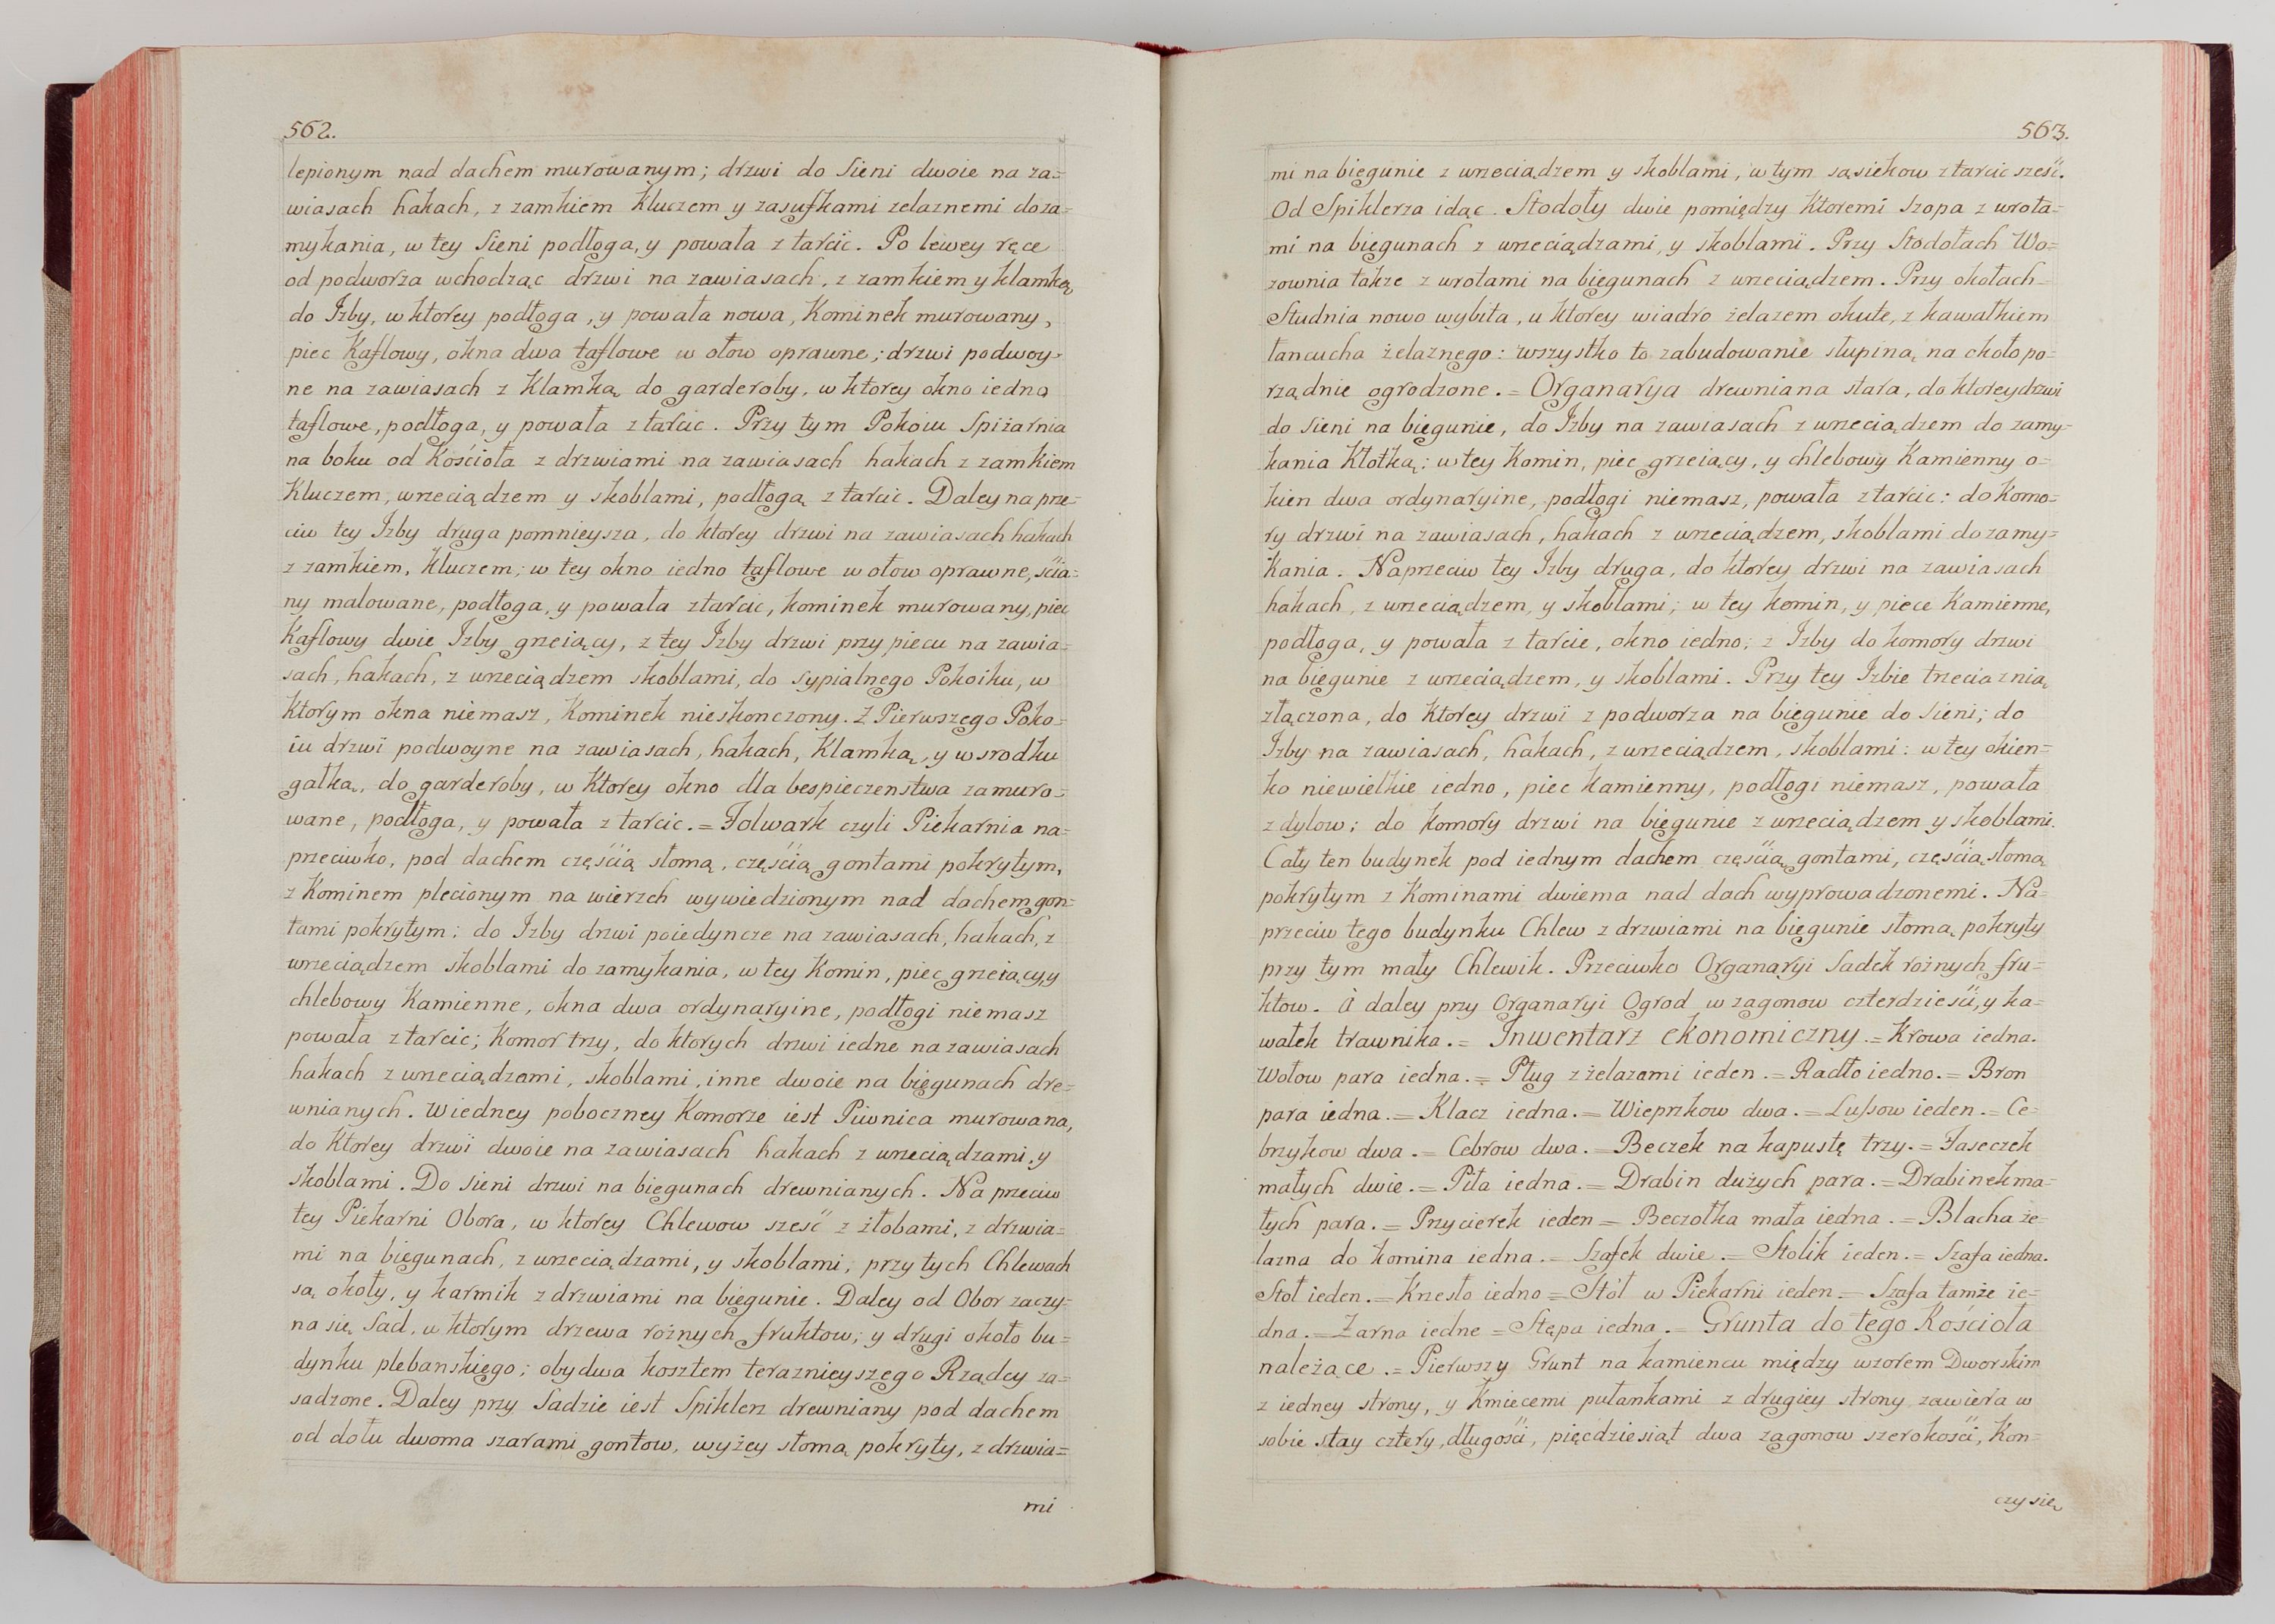 562.
lepionym nad dachem murowanym; drzwi do Sieni dwoie na za=
wiasach hakach, z zamkiem Kluczem y zasufkami zelaznemi do za=
mykania, w tey Sieni podłoga, y powała z tarcic. Po lewey ręce
od podworza wchodząc drzwi na zawiasach, z zamkiem y klamką
do Izby, w ktorey podłoga, y powała nowa, Kominek murowany,
piec Kaflowy, okna dwa taflowe w ołow oprawne; drzwi podwoy=
ne na zawiasach z Klamką do garderoby, w ktorey okno iedno
taflowe, podłoga, y powała z tarcic. Przy tym Pokoiu Spiżarnia
na boku od Kościoła z drzwiami na zawiasach hakach z zamkiem
Kluczem, wrzeciądzem y skoblami, podłogą z tarcic. Daley na prze=
ciw tey Izby druga pomnieysza, do ktorey drzwi na zawiasach hakach
z zamkiem, Kluczem; w tey okno iedno taflowe w ołow oprawne, ścia=
ny malowane, podłoga, y powała z tarcic, kominek murowany, piec
Kaflowy dwie Izby grzeiący, z tey Izby drzwi przy piecu na zawia=
sach, hakach, z wrzeciądzem skoblami, do sypialnego Pokoiku, w
Ktorym okna niemasz, Kominek nieskonczony. Z Pierwszego Poko=
iu drzwi podwoyne na zawiasach, hakach, Klamką, y w srodku
gałką, do garderoby, w Ktorey okno dla bespieczenstwa zamuro=
wane, podłoga, y powała z tarcic. = Folwark czyli Piekarnia na=
przeciwko, pod dachem częścią słomą, częścią gontami pokrytym,
z Kominem plecionym na wierzch wywiedzionym nad dachem gon=
tami pokrytym: do Izby drzwi poiedyncze na zawiasach, hakach, z
wrzeciądzem skoblami do zamykania, w tey Komin, piec grzeiący, y
chlebowy Kamienne, okna dwa ordynaryine, podłogi niemasz
powała z tarcic; Komor trzy, do ktorych drzwi iedne na zawiasach
hakach z wrzeciądzami, skoblami, inne dwoie na biegunach dre=
wnianych. W iedney poboczney Komorze iest Piwnica murowana,
do Ktorey drzwi dwoie na zawiasach hakach z wrzeciądzami, y
skoblami. Do sieni drzwi na biegunach drewnianych. Na przeciw
tey Piekarni Obora, w ktorey Chlewow sześć z żłobami, z drzwia=
mi na biegunach, z wrzeciądzami, y skoblami; przy tych Chlewach
są okoły, y karmik z drzwiami na biegunie. Daley od Obor zaczy=
na się Sad, w ktorym drzewa rożnych fruktow; y drugi około bu=
dynku plebanskiego; obydwa kosztem teraznieyszego Rządcy za=
sadzone. Daley przy Sadzie iest Spiklerz drewniany pod dachem
od dołu dwoma szarami gontow, wyżey słomą pokryty, z drzwia=
mi
563.
mi na biegunie z wrzeciądzem y skoblami, w tym sąsiekow z tarcic sześć.
Od Spiklerza idąc. Stodoły dwie pomiędzy Ktoremi Szopa z wrota=
mi na biegunach z wrzeciądzami, y skoblami. Przy Stodołach Wo=
zownia także z wrotami na biegunach z wrzeciądzem. Przy okołach
Studnia nowo wybita, u ktorey wiadro żelazem okute, z kawałkiem
łancucha żelaznego: wszystko to zabudowanie słupiną na około po=
rządnie ogrodzone. = Organarya drewniana stara, do ktorey drzwi
do sieni na biegunie, do Izby na zawiasach z wrzeciądzem do zamy=
kania Kłotką; w tey Komin, piec grzeiący, y chlebowy Kamienny o=
kien dwa ordynaryine, podłogi niemasz, powała z tarcic: do Komo=
ry drzwi na zawiasach, hakach z wrzeciądzem, skoblami do zamy=
kania. Naprzeciw tey Izby druga, do ktorey drzwi na zawiasach
hakach, z wrzeciądzem, y skoblami; w tey komin, y piece Kamienne,
podłoga, y powała z tarcic, okno iedno; z Izby do komory drzwi
na biegunie z wrzeciądzem, y skoblami. Przy tey Izbie trzecia z nią
złączona, do Ktorey drzwi z podworza na biegunie do Sieni; do
Izby na zawiasach, hakach, z wrzeciądzem, skoblami: w tey okien=
ko niewielkie iedno, piec kamienny, podłogi niemasz, powała
z dylow; do komory drzwi na biegunie z wrzeciądzem y skoblami.
Cały ten budynek pod iednym dachem częścią gontami, częścią słomą
pokrytym z Kominami dwiema nad dach wyprowadzonemi. Na=
przeciw tego budynku Chlew z drzwiami na biegunie słomą pokryty
przy tym mały Chlewik. Przeciwko Organaryi Sadek rożnych fru=
ktow. A daley przy Organaryi Ogrod w zagonow czterdzieści, y ka=
wałek trawnika. = Inwentarz ekonomiczny. = Krowa iedna.
Wołow para iedna. = Pług z żelazami ieden. = Radło iedno. = Bron
para iedna. = Klacz iedna. = Wieprzkow dwa. = Lussow ieden. = Ce=
brzykow dwa. = Cebrow dwa. = Beczek na kapustę trzy. = Faseczek
małych dwie. = Piła iedna. = Drabin dużych para. = Drabinek ma=
łych para. = Przycierek ieden = Beczołka mała iedna. = Blacha że=
lazna do komina iedna. = Szafek dwie. = Stolik ieden. = Szafa iedna.
Stoł ieden. = Krzesło iedno = Stół w Piekarni ieden = Szafa tamże ie=
dna. = Zarna iedne = Stępa iedna. = Grunta do tego Kościoła
należące. = Pierwszy Grunt na kamiencu między wzorem Dworskim
z iedney strony, y Kmiecemi pułankami z drugiey strony zawiera w
sobie stay cztery, długości, pięcdziesiąt dwa zagonow szerokości, Kon=
czy się